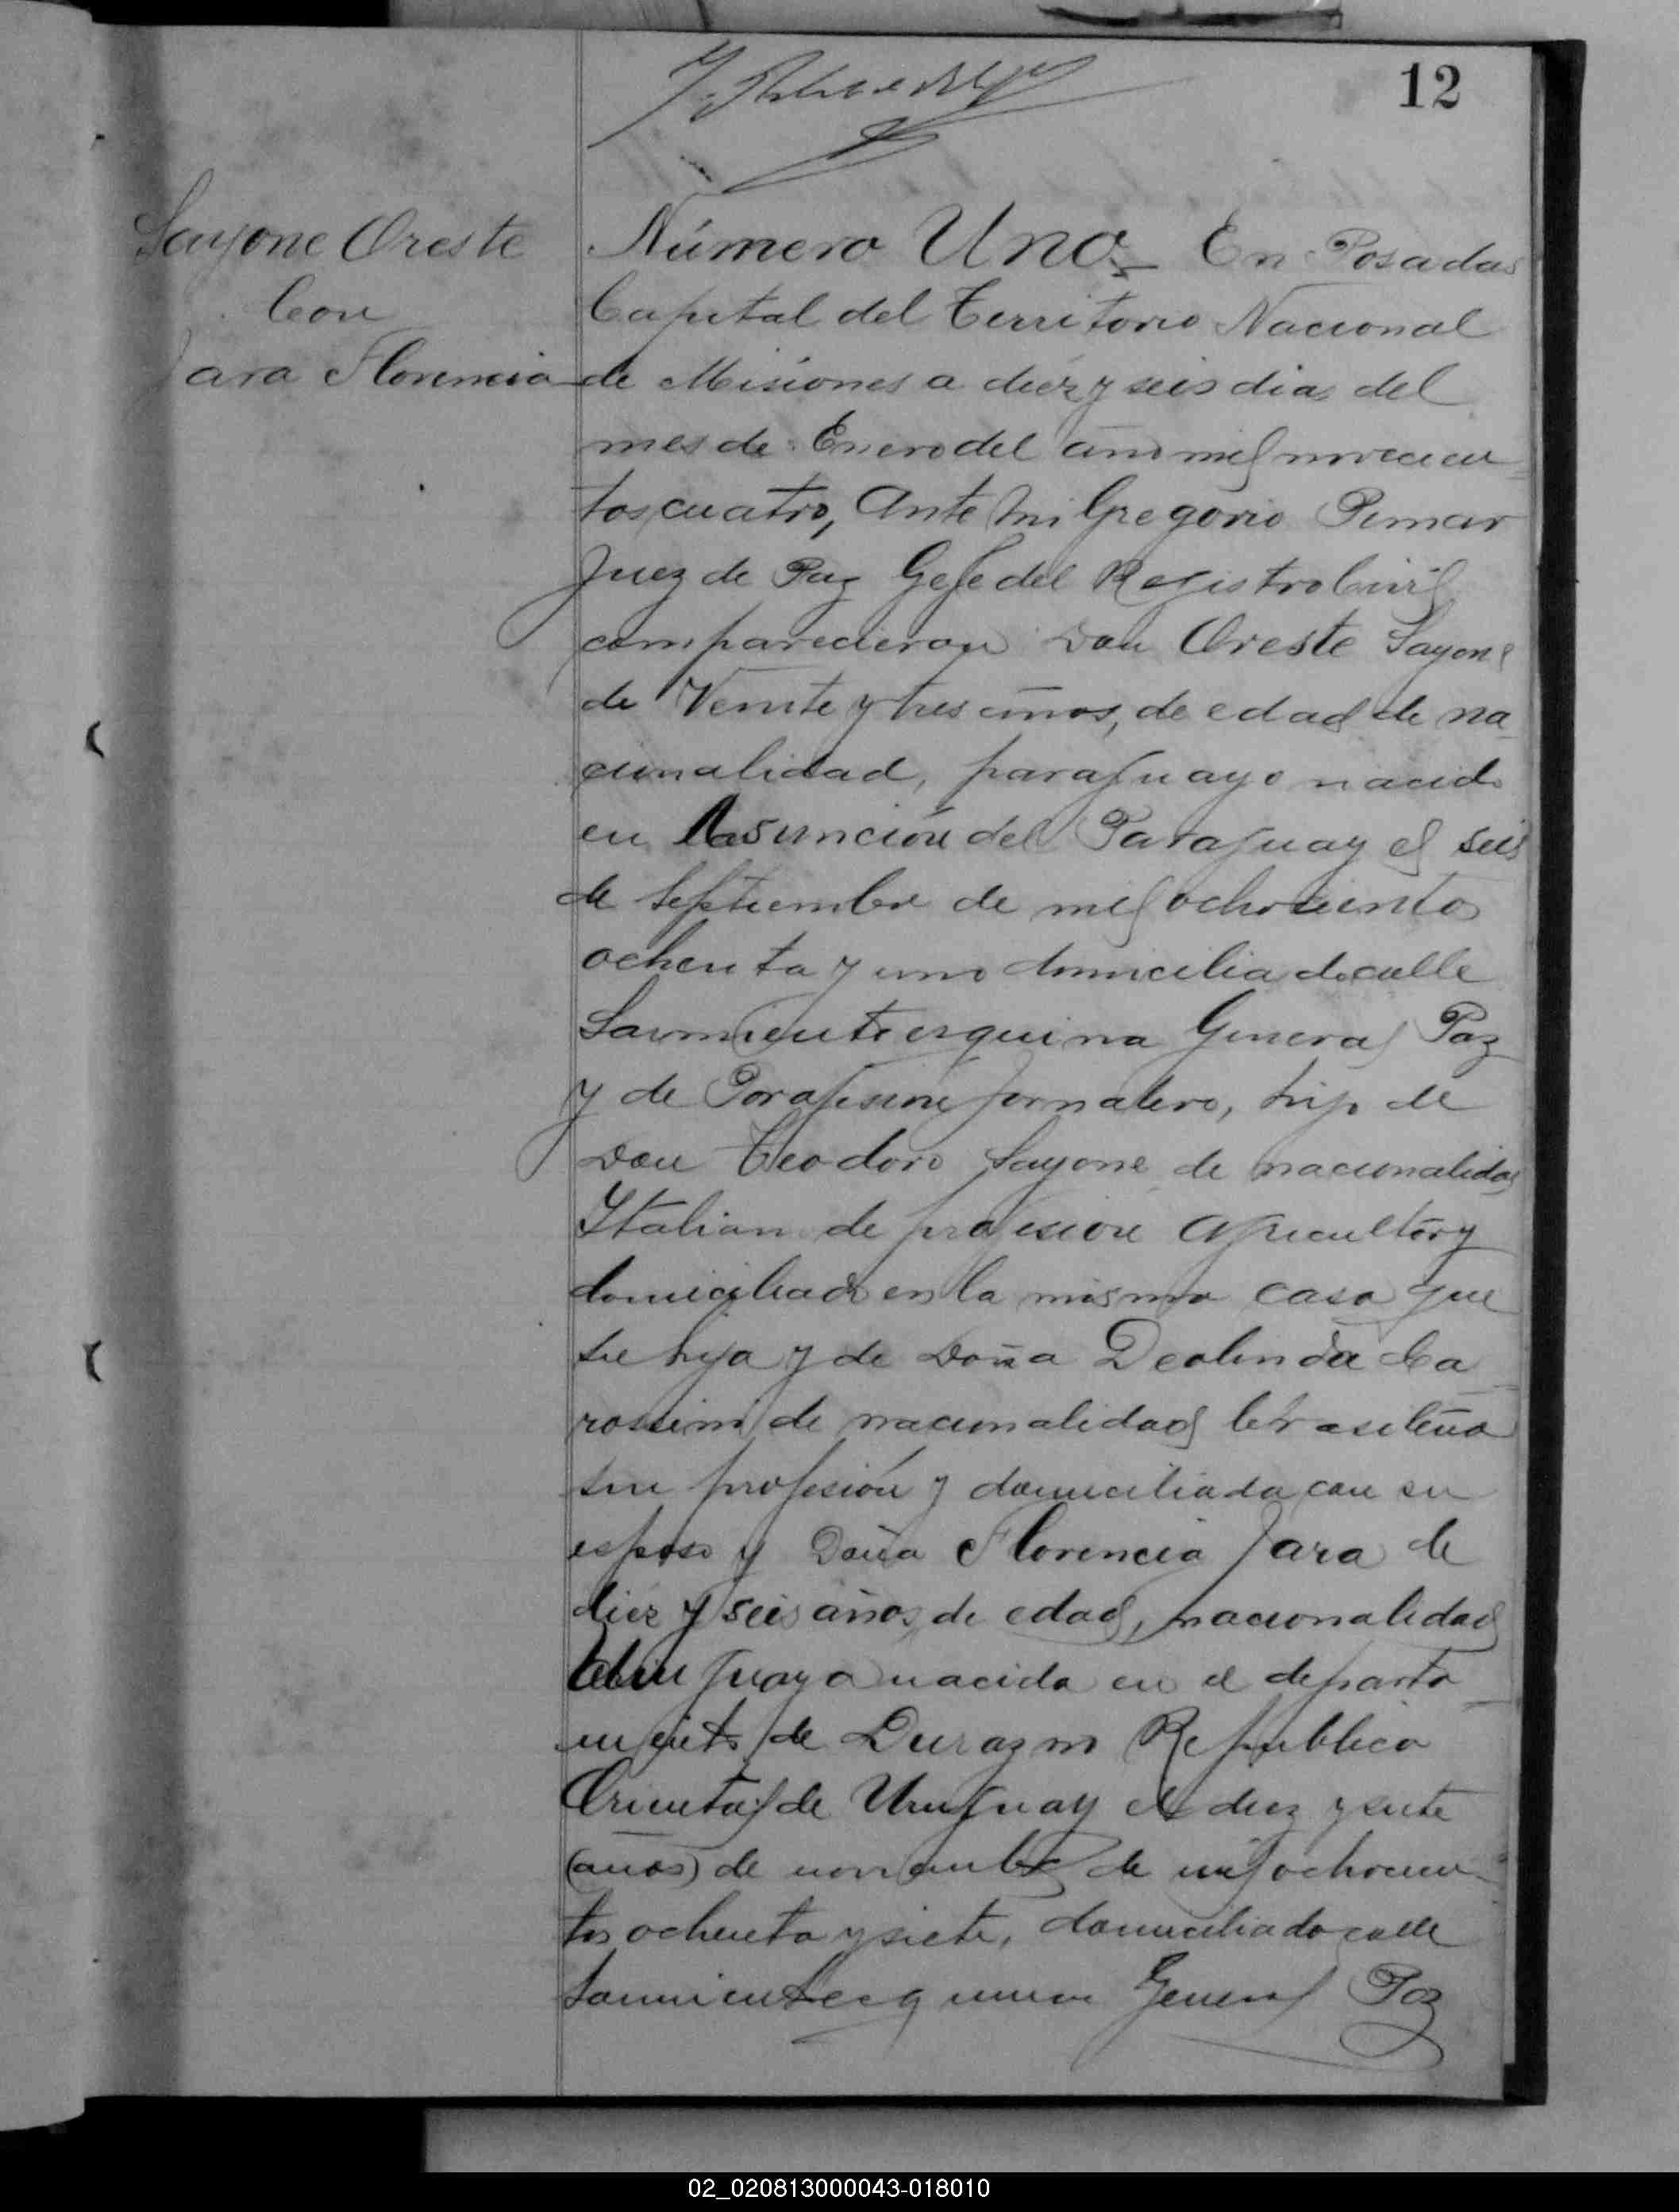 12
Sayone Oreste
Con
Jara Florencia
Número Uno_ En Posadas
Capital del Territorio Nacional
de Misiones a diez y seis dias del
mes de Enero del año mil novecien
tos cuatro, Ante mi Gregorio
Juez de Paz Gefe del Registro Civil
comparecieron Don Oreste Sayone
de Veinte y tres años, de edad de na
cionalidad, paraguayo nacido
en Asunción del Paraguay el seis
de Septiembre de mil ochocientos
ochenta y uno domiciliado calle
Sarmiento esquina General Paz
y de Profesion jornalero, hijo de
Don Teodoro Sayone de nacionalidad
Italiano de profesion agricultor y
domiciliado en la misma casa que
su hijo y de Doña Deolinda Ca
rossini de nacionalidad brasileña
sin profesión y domiciliada con su
esposo y Doña Florencia Jara de
diez y seis años de edad, nacionalidad
Uruguaya nacida en el departa
mento de Durazno Republica
Oriental de Uruguay el diez y siete
(años) de noviembre de mil ochocien
tos ochenta y siete, domiciliada calle
Sarmiento esquina General Paz
02_020813000043-018010